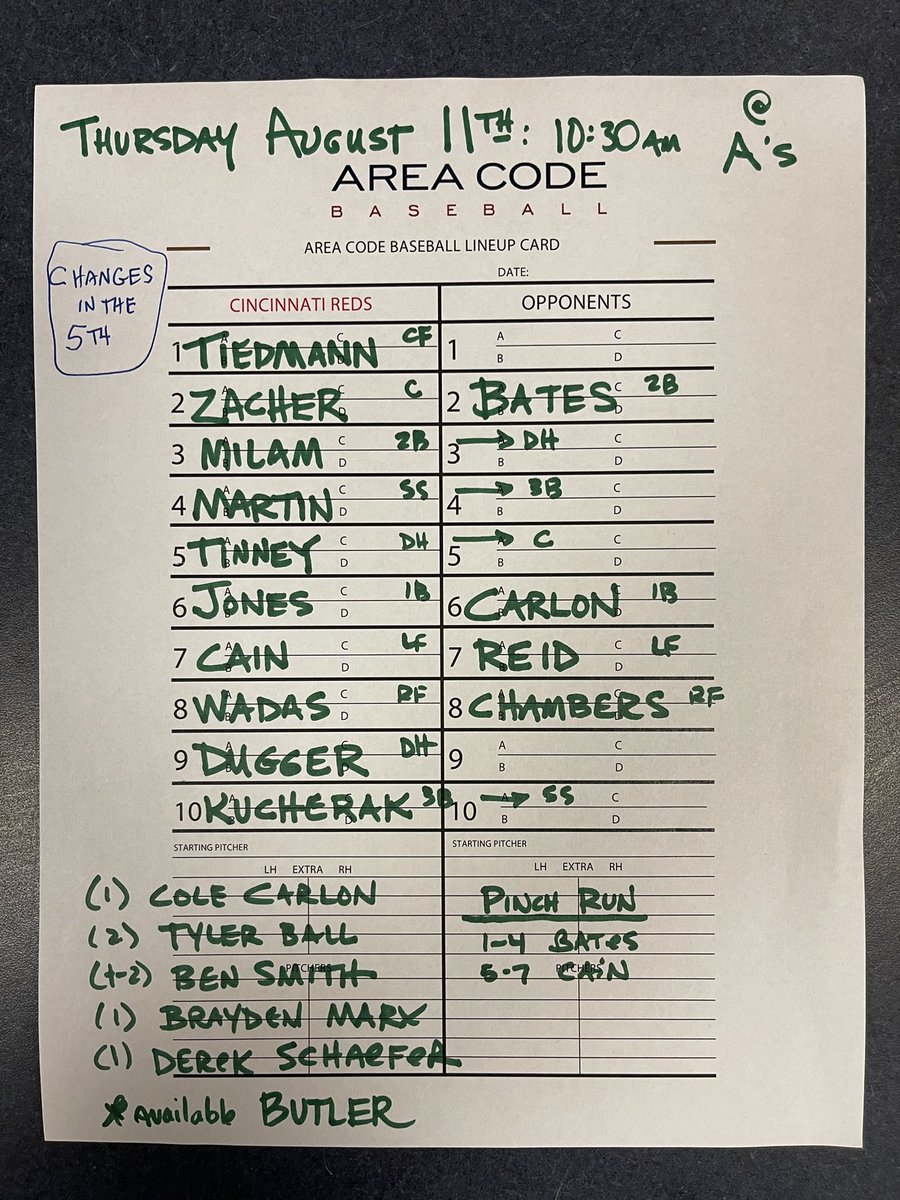 @
THURSDAY AUGUST 11TH: 10:30AM A's
AREA CODE
BASEBALL
AREA CODE BASEBALL LINEUP CARD
DATE:
CHANGES
IN THE
5TH
CINCINNATI REDS OPPONENTS
1 TIEDMANN CF 1 A B C D
2 ZACHER C 2 BATES 2B
3 MILAM 2B 3 → DH
4 MARTIN SS 4 → 3B
5 TINNEY DH 5 → C
6 JONES 1B 6 CARLON 1B
7 CAIN LF 7 REID LF
8 WADAS RF 8 CHAMBERS RF
9 DUGGER DH 9 A B C D
10 KUCHERAK 3B 10 → SS
STARTING PITCHER STARTING PITCHER
LH EXTRA RH LH EXTRA RH
(1) COLE CARLON PINCH RUN
(2) TYLER BALL 1-4 BATES
(1-2) BEN SMITH 5-7 CAIN
PITCHERS PITCHERS
(1) BRAYDEN MARX
(1) DEREK SCHAEFER
* Available BUTLER